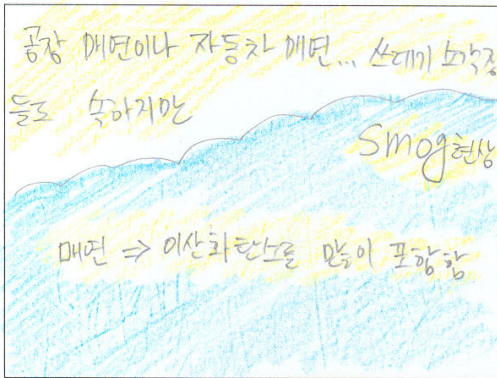 공장 매연이나 자동차 매연... 쓰레기 소각장
등도 속하지만
Smog현상
매연 ⇒ 이산화탄소를 많이 포함함